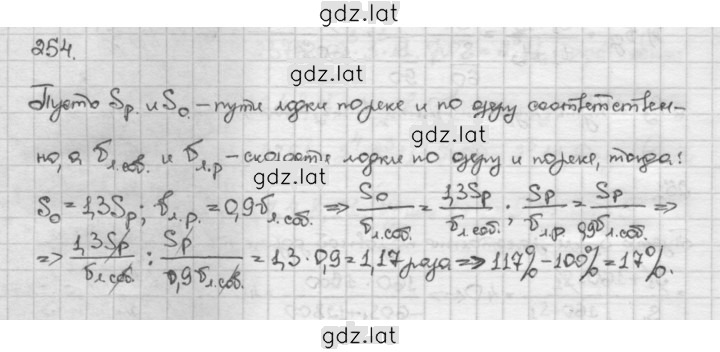 gdz.lat
254.
gdz.lat
Пусть Sр. и Sо. – пути лодки по реке и по озеру соответствен-
gdz.lat
но, а вл.соб. и вл.р – скорости лодки по озеру и по реке, тогда:
gdz.lat
Sо = 1,3Sр; вл.р. = 0,9вл.соб. => Sо/вл.соб. = 1,3Sр/вл.соб.; Sр/вл.р. = Sр/0,9вл.соб. =>
=> 1,3Sр/вл.соб. : Sр/0,9вл.соб. = 1,3 · 0,9 = 1,17 раза => 117% – 100% = 17%.
gdz.lat